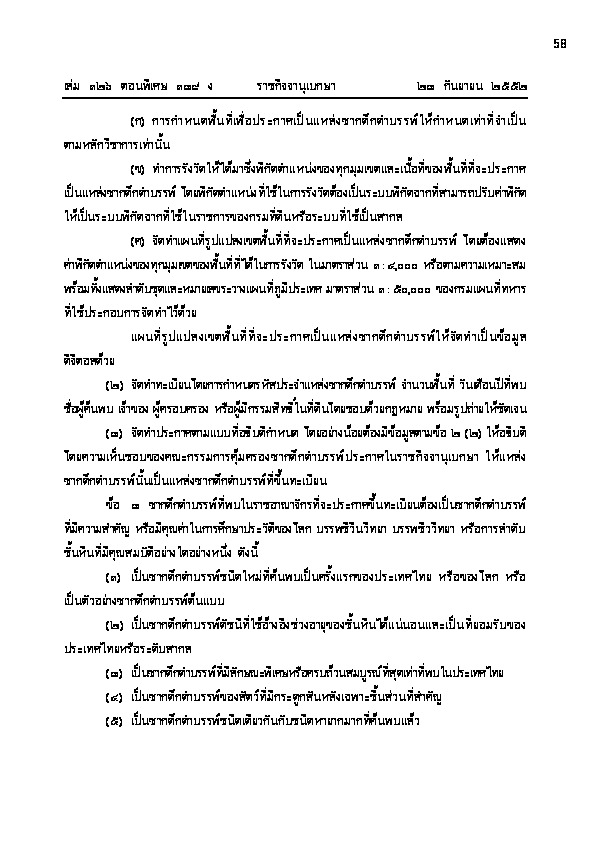 58
เล่ม ๑๒๖ ตอนพิเศษ ๑๓๙ ง ราชกิจจานุเบกษา ๒๓ กันยายน ๒๕๕๒
(ก) การกำหนดพื้นที่เพื่อประกาศเป็นแหล่งซากดึกดำบรรพ์ ให้กำหนดเท่าที่จำเป็น
ตามหลักวิชาการเท่านั้น
(ข) ทำการรังวัดให้ได้มาซึ่งพิกัดตำแหน่งของทุกมุมเขตและเนื้อที่ของพื้นที่ที่จะประกาศ
เป็นแหล่งซากดึกดำบรรพ์ โดยพิกัดตำแหน่งที่ใช้ในการรังวัดต้องเป็นระบบพิกัดฉากที่สามารถปรับค่าพิกัด
ให้เป็นระบบพิกัดฉากที่ใช้ในราชการของกรมที่ดินหรือระบบที่ใช้เป็นสากล
(ค) จัดทำแผนที่รูปแปลงเขตพื้นที่ที่จะประกาศเป็นแหล่งซากดึกดำบรรพ์ โดยต้องแสดง
ค่าพิกัดตำแหน่งของทุกมุมเขตของพื้นที่ที่ได้ในการรังวัด ในมาตราส่วน ๑ : ๔,๐๐๐ หรือตามความเหมาะสม
พร้อมทั้งแสดงลำดับชุดและหมายเลขระวางแผนที่ภูมิประเทศ มาตราส่วน ๑ : ๕๐,๐๐๐ ของกรมแผนที่ทหาร
ที่ใช้ประกอบการจัดทำไว้ด้วย
แผนที่รูปแปลงเขตพื้นที่ที่จะประกาศเป็นแหล่งซากดึกดำบรรพ์ให้จัดทำเป็นข้อมูล
ดิจิตอลด้วย
(๒) จัดทำทะเบียนโดยการกำหนดรหัสประจำแหล่งซากดึกดำบรรพ์ จำนวนพื้นที่ วันเดือนปีที่พบ
ชื่อผู้ค้นพบ เจ้าของ ผู้ครอบครอง หรือผู้มีกรรมสิทธิ์ในที่ดินโดยชอบด้วยกฎหมาย พร้อมรูปถ่ายให้ชัดเจน
(๓) จัดทำประกาศตามแบบที่อธิบดีกำหนด โดยอย่างน้อยต้องมีข้อมูลตามข้อ ๒ (๒) ให้อธิบดี
โดยความเห็นชอบของคณะกรรมการคุ้มครองซากดึกดำบรรพ์ประกาศในราชกิจจานุเบกษา ให้แหล่ง
ซากดึกดำบรรพ์นั้นเป็นแหล่งซากดึกดำบรรพ์ที่ขึ้นทะเบียน
ข้อ ๓ ซากดึกดำบรรพ์ที่พบในราชอาณาจักรที่จะประกาศขึ้นทะเบียนต้องเป็นซากดึกดำบรรพ์
ที่มีความสำคัญ หรือมีคุณค่าในการศึกษาประวัติของโลก บรรพชีวินวิทยา บรรพชีววิทยา หรือการลำดับ
ชั้นหินที่มีคุณสมบัติอย่างใดอย่างหนึ่ง ดังนี้
(๑) เป็นซากดึกดำบรรพ์ชนิดใหม่ที่ค้นพบเป็นครั้งแรกของประเทศไทย หรือของโลก หรือ
เป็นตัวอย่างซากดึกดำบรรพ์ต้นแบบ
(๒) เป็นซากดึกดำบรรพ์ดัชนีที่ใช้อ้างอิงช่วงอายุของชั้นหินได้แน่นอนและเป็นที่ยอมรับของ
ประเทศไทยหรือระดับสากล
(๓) เป็นซากดึกดำบรรพ์ที่มีลักษณะพิเศษหรือครบถ้วนสมบูรณ์ที่สุดเท่าที่พบในประเทศไทย
(๔) เป็นซากดึกดำบรรพ์ของสัตว์ที่มีกระดูกสันหลังเฉพาะชิ้นส่วนที่สำคัญ
(๕) เป็นซากดึกดำบรรพ์ชนิดเดียวกันกับชนิดหายากมากที่ค้นพบแล้ว